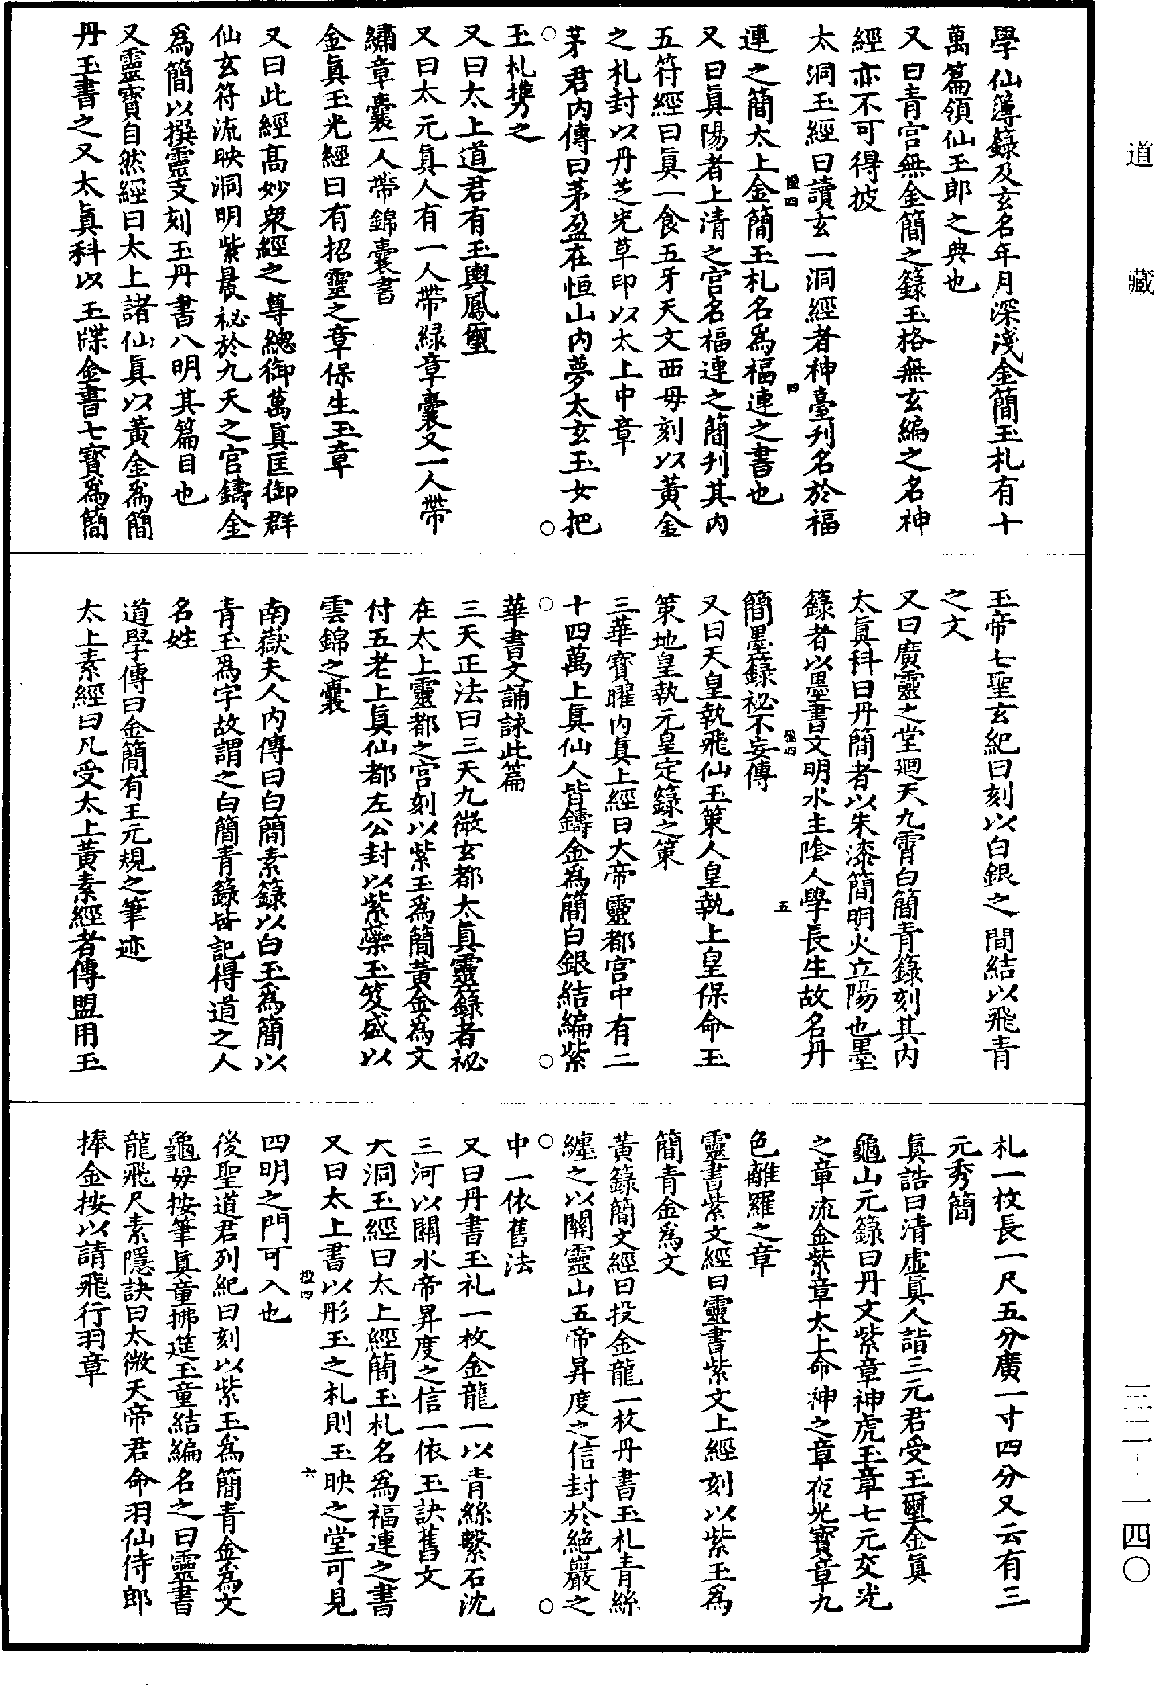 道藏
三二-一四〇
學仙簿錄及玄名年月深淺金簡玉札有十
萬篇領仙玉郎之典也
又曰青宮無金簡之錄玉格無玄編之名神
經亦不可得披
太洞玉經曰讀玄一洞經者神臺刋名於福
連之簡太上金簡玉札名爲福連之書也
又曰眞陽者上清之宮名福連之簡刋其内
五符經曰眞一食五牙天文西母刻以黃金
之札封以丹芝光草印以太上中章
茅君内傳曰茅盈在恒山内夢太玄玉女把
玉札携之
又曰太上道君有玉輿鳳璽
又曰太元眞人有一人帶綠章囊又一人帶
繡章囊一人帶錦囊書
金眞玉光經曰有招靈之章保生玉章
又曰此經高妙衆經之尊總御萬眞匡御群
仙玄符流映洞明紫晨祕於九天之宮鑄金
爲簡以撰靈文刻玉丹書八明其篇目也
又靈寶自然經曰太上諸仙眞以黃金爲簡
丹玉書之又太眞科以玉牒金書七寶爲簡
玉帝七聖玄紀曰刻以白銀之間結以飛青
之文
又曰廣靈之堂廻天九霄白簡青錄刻其内
太眞科曰丹簡者以朱漆簡明火立陽也墨
錄者以墨書文明水主陰人學長生故名丹
簡墨錄祕不妄傳
又曰天皇執飛仙玉策人皇執上皇保命玉
策地皇執元皇定錄之策
三華寶曜内眞上經曰大帝靈都宮中有二
十四萬上眞仙人皆鑄金爲簡白銀結編紫
華書文誦詠此篇
三天正法曰三天九微玄都太眞靈錄者祕
在太上靈都之宮刻以紫玉爲簡黃金爲文
付五老上眞仙都左公封以紫蘂玉笈盛以
雲錦之囊
南嶽夫人内傳曰白簡素錄以白玉爲簡以
青玉爲字故謂之白簡青錄皆記得道之人
名姓
道學傳曰金簡有王元規之筆迹
太上素經曰凡受太上黃素經者傳盟用玉
札一枚長一尺五分廣一寸四分又云有三
元秀簡
眞誥曰清虛眞人詣三元君受玉璽金眞
龜山元錄曰丹文紫章神虎玉章七元交光
之章流金紫章太上命神之章夜光寶章九
色離羅之章
靈書紫文經曰靈書紫文上經刻以紫玉爲
簡青金爲文
黃錄簡文經曰投金龍一枚丹書玉札青絲
纏之以關靈山五帝昇度之信封於絕巖之
中一依舊法
又曰丹書玉礼一枚金龍一以青絲繫石沈
三河以關水帝昇度之信一依玉訣舊文
大洞玉經曰太上經簡玉札名爲福連之書
又曰太上書以彤玉之札則玉映之堂可見
四明之門可入也
後聖道君列紀曰刻以紫玉爲簡青金爲文
龜母按筆眞童拂筵玉童結編名之曰靈書
龍飛尺素隱訣曰太微天帝君命羽仙侍郎
捧金按以請飛行羽章